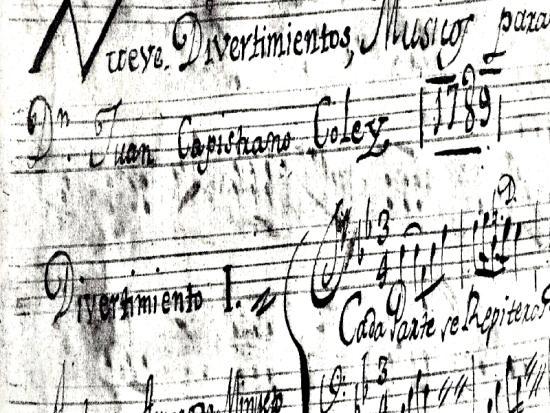 Nueve Divertimientos, Musicos para
Dn Juan Capistrano Coley 1789
Divertimiento I.
3
4
Cada Parte se Repitera
3